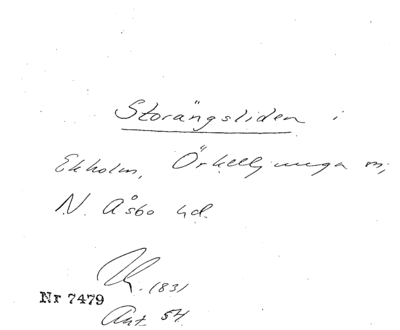 Storängsliden i
Ekholm, Örkelljunga sn,
N. Åsbo hd.
1831
Nr 7479
Ant. 54.